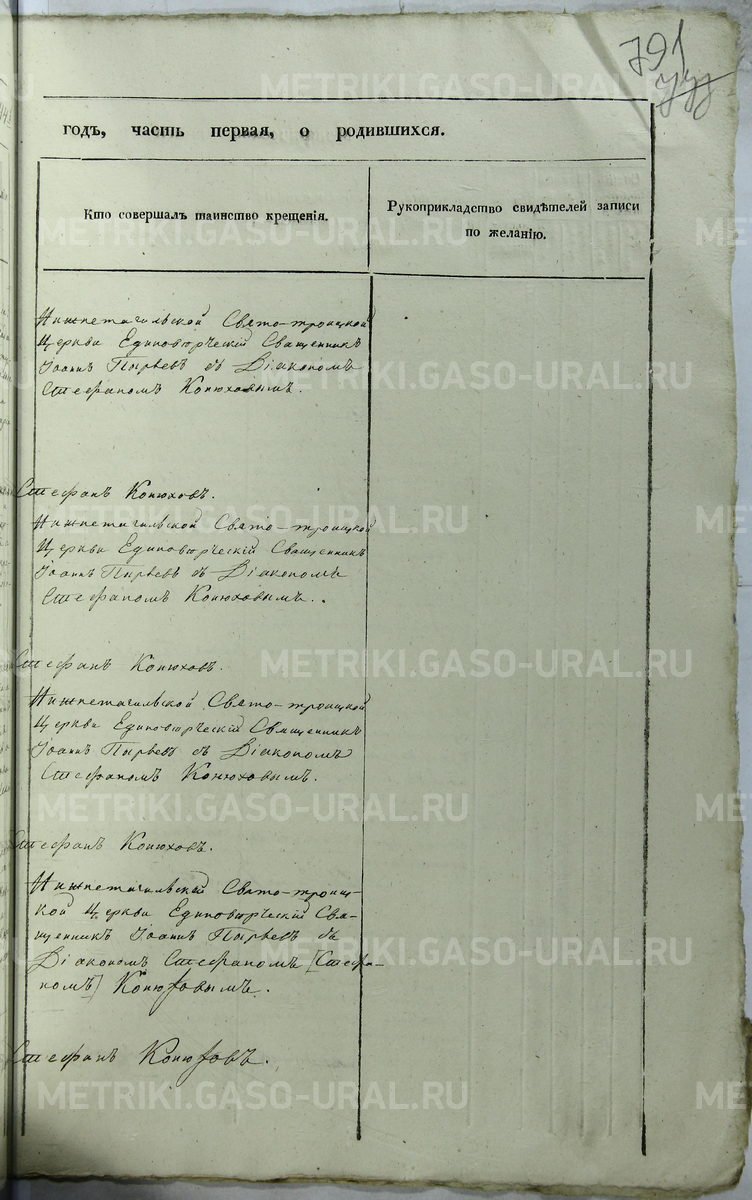 791
годъ, часть первая, о родившихся.
Кто совершалъ таинство крещенія.
Рукоприкладство свидѣтелей записи по желанію.
Нижнетагильской Свято-троицкой
Церкви Единовѣрческій Священникъ
Іоаннъ Пырьевъ съ Діакономъ
Стефаномъ Конюховымъ.
Стефанъ Конюховъ.
Нижнетагильской Свято-троицкой
Церкви Единовѣрческій Священникъ
Іоаннъ Пырьевъ съ Діакономъ
Стефаномъ Конюховымъ.
Стефанъ Конюховъ.
Нижнетагильской Свято-троицкой
Церкви Единовѣрческій Священникъ
Іоаннъ Пырьевъ съ Діакономъ
Стефаномъ Конюховымъ.
Стефанъ Конюховъ.
Нижнетагильской Свято-троиц-
кой Церкви Единовѣрческій Свя-
щенникъ Іоаннъ Пырьевъ съ
Діакономъ Стефаномъ [Стефа-
номъ] Конюховымъ.
Стефанъ Конюховъ.
METRIKI.GASO-URAL.RU